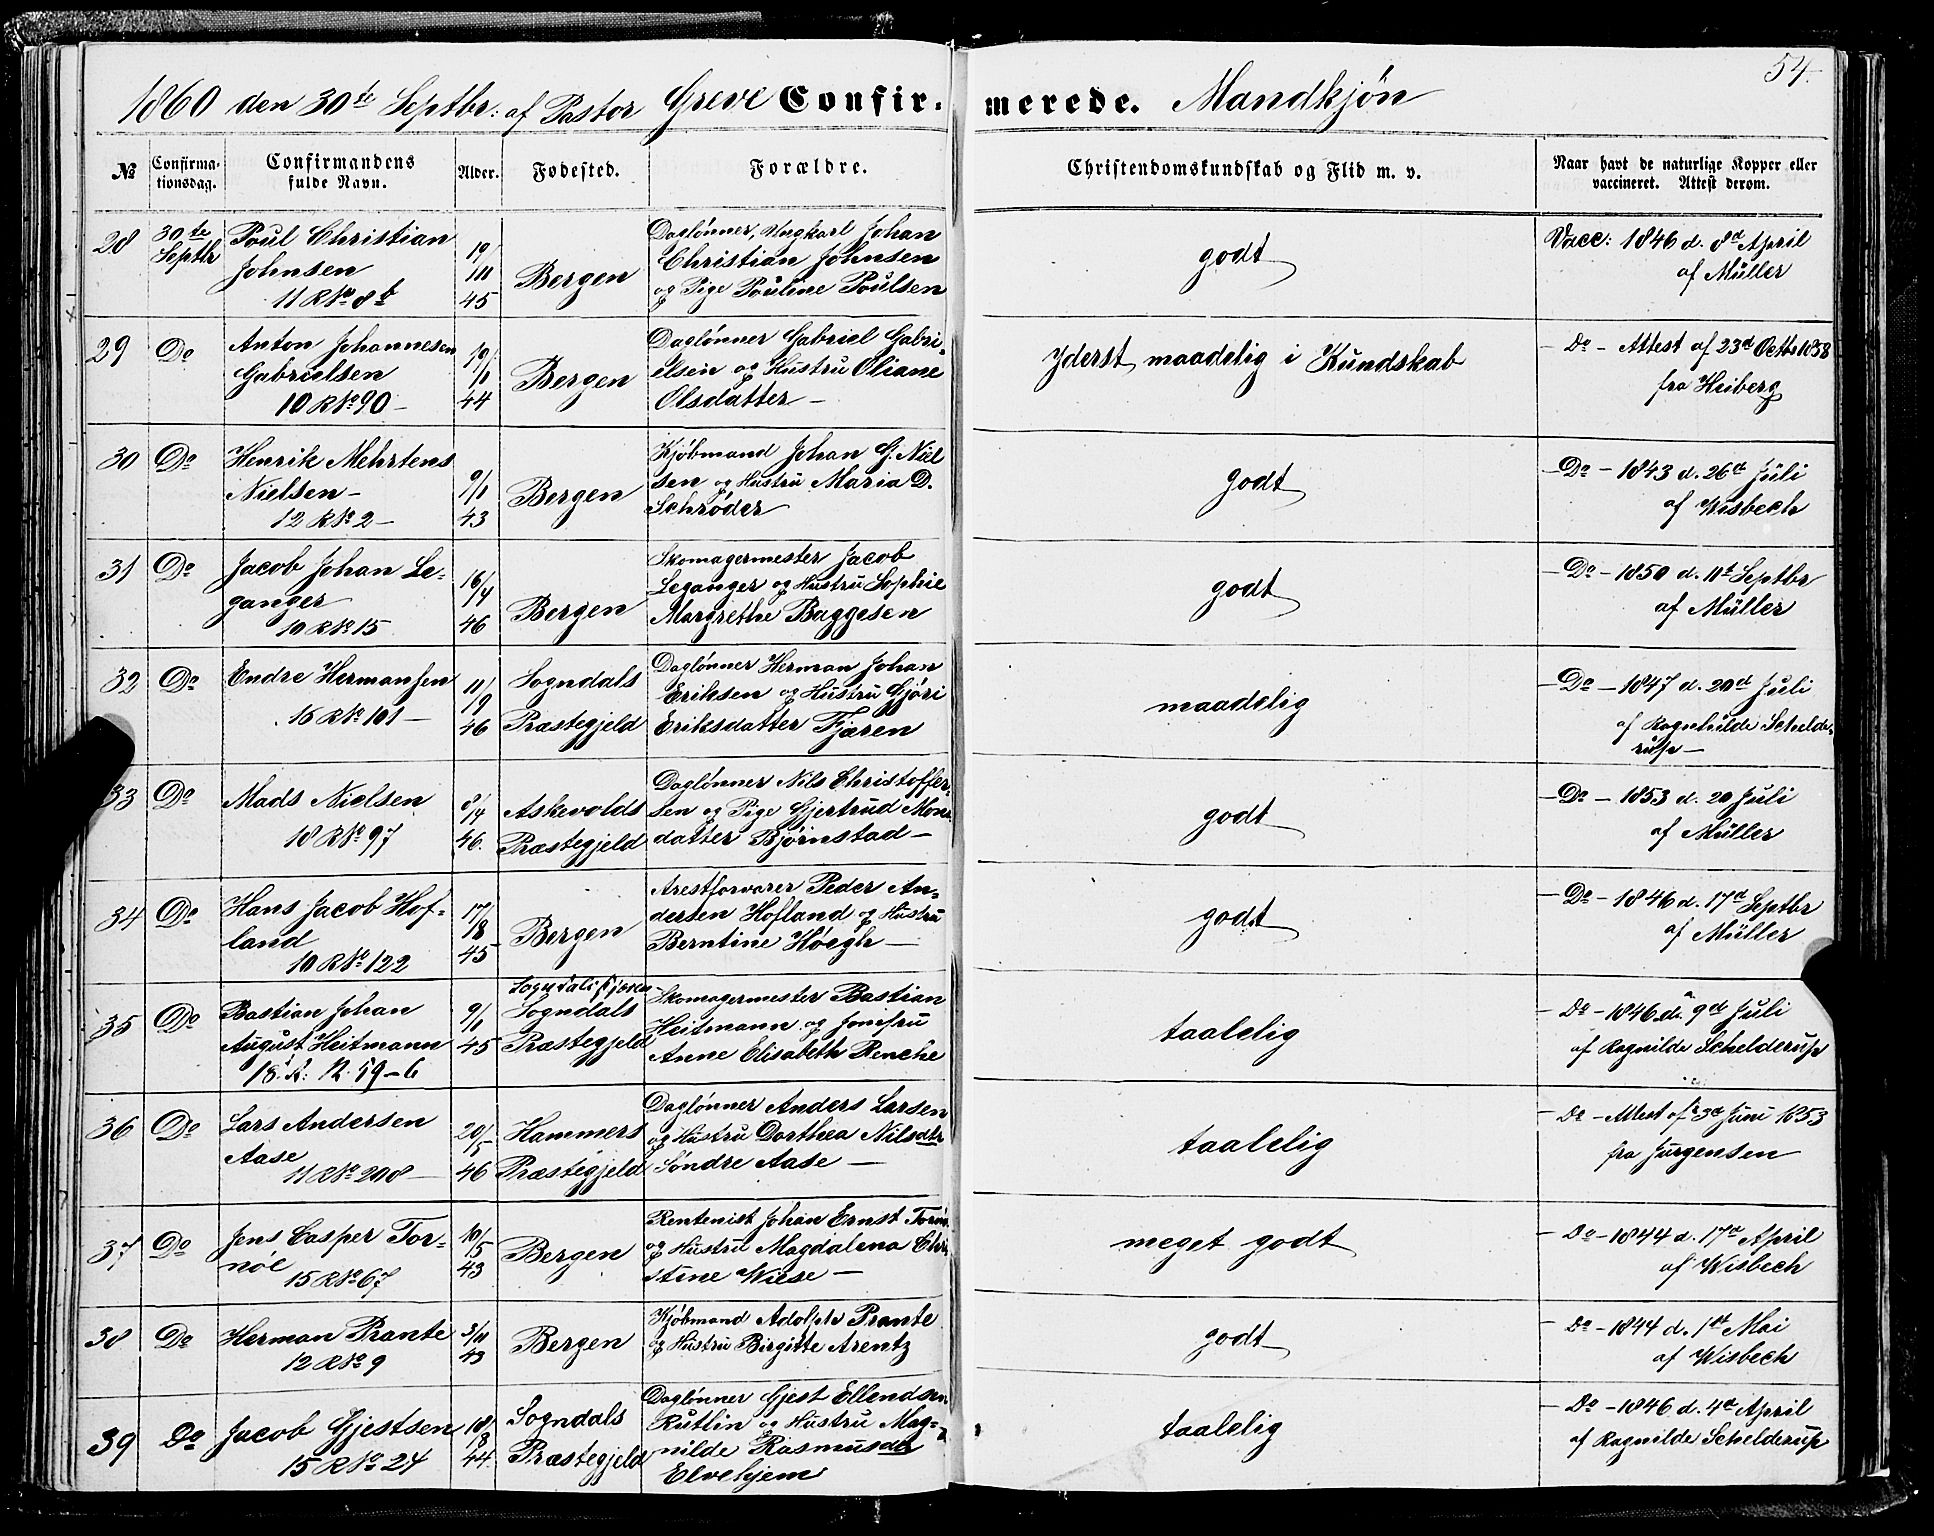 54.
1860 den 30te Septbr: af Pastor Greve Confirmerede. Mandkjøn
No Confirmationsdag. Confirmandens fulde Navn. Alder. Fødested. Forældre. Christendomskundskab og Flid m. v. Naar havt de naturlige Kopper eller vaccineret. Attest derom.
28 30te Septbr
Poul Christian
Johnsen
11 R No 8b
45
Bergen
Daglønner, Ungkarl Johan
Christian Johnsen
og Pige Pouline Poulsen
godt
Vacc: 1846 d. 8d April
af Müller
29 Do
Anton Johannesen
Gabrielsen
10 R No 90 -
44
Bergen
Daglønner Gabriel Gabri-
elsen og Hustru Oliane
Olsdatter -
Yderst maadelig i Kundskab
- Do - Attest af 23d Octbr 1858
fra Heiberg
30 Do
Henrik Mehrtens
Nielsen -
12 R No 2 -
9/1
43
Bergen
Kjøbmand Johan G. Niel
sen og Hustru Maria D.
Schrøder
godt
- Do - 1843 d. 26d Juli
af Wisbech
31 Do
Jacob Johan Le-
ganger
10 R No 15
16/4
46
Bergen
Skomagermester Jacob
Leganger og Hustru Sophie
Margrethe Baggesen
godt
- Do - 1850 d. 11t Septbr
af Müller
32 Do
Endre Hermansen
16 R No 101 -
11/9
46
Sogndals
Præstegjeld
Daglønner Herman Johan
Eriksen og Hustru Gjøri
Eriksdatter Fjæren
maadelig
- Do - 1847 d. 20d Juli
af Ragnhilde Schelde-
rup -
33 Do
Mads Nielsen
18 R No 97
8/4
46.
Askevolds
Præstegjeld
Daglønner Nils Christoffer-
sen og Pige Gjertrud Mons
datter Bjørnstad -
godt
- Do - 1853 d. 20 Juli
af Müller
34 Do
Hans Jacob Hof-
land
10 R No 122
17/8
45
Bergen
Arestforvarer Peder An-
dersen Hofland og Hustru
Berntine Høegh -
godt
- Do - 1846 d. 17d Septbr
af Müller
35 Do
Bastian Johan
August Heitmann
18. R: N. 59-6
9/1
45
Sogndalsfjæren
Sogndals
Præstegjeld
Skomagermester Bastian
Heitmann og Jomfru
Anne Elisabeth Renche
taalelig
Do - 1846 d. 9d Juli
af Ragnilde Schelderup
36 Do
Lars Andersen
Aase
11 R No 208 -
20/5
46
Hammers
Præstegjeld
Daglønner Anders Larsen
og Hustru Dorthea Nilsdtr
Søndre Aase -
taalelig
- Do - Attest af 3d Juni 1853
fra Jürgensen
37 Do
Jens Casper Tor-
nøe
15 R No 67
10/5
43
Bergen
Rentenist Johan Ernst Tornøe
og Hustru Magdalena Chri
stine Wiese -
meget godt
- Do - 1844 d. 17d April
af Wisbech
38 Do
Herman Prante
12 R No 9
3/11
43
Bergen
Kjøbmand Adolph Prante
og Hustru Birgitte Arentz
godt
- Do - 1844 d. 1st Mai
af Wisbech
39 Do
Jacob Gjestsen
15 R No 24
44.
Sogndals
Præstegjeld
Daglønner Gjest Ellendsen
Kutlin og Hustru Mag-
nilde Rasmusdtr
Elvehjem
taalelig
- Do - 1846 d. 4d April
af Ragnilde Schelderup